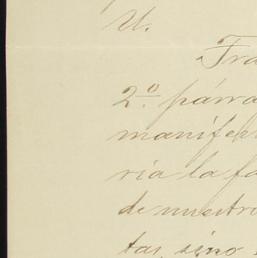 U.
Tra
2º párra
manifes
ria la fa
de nuestro
tas, sino